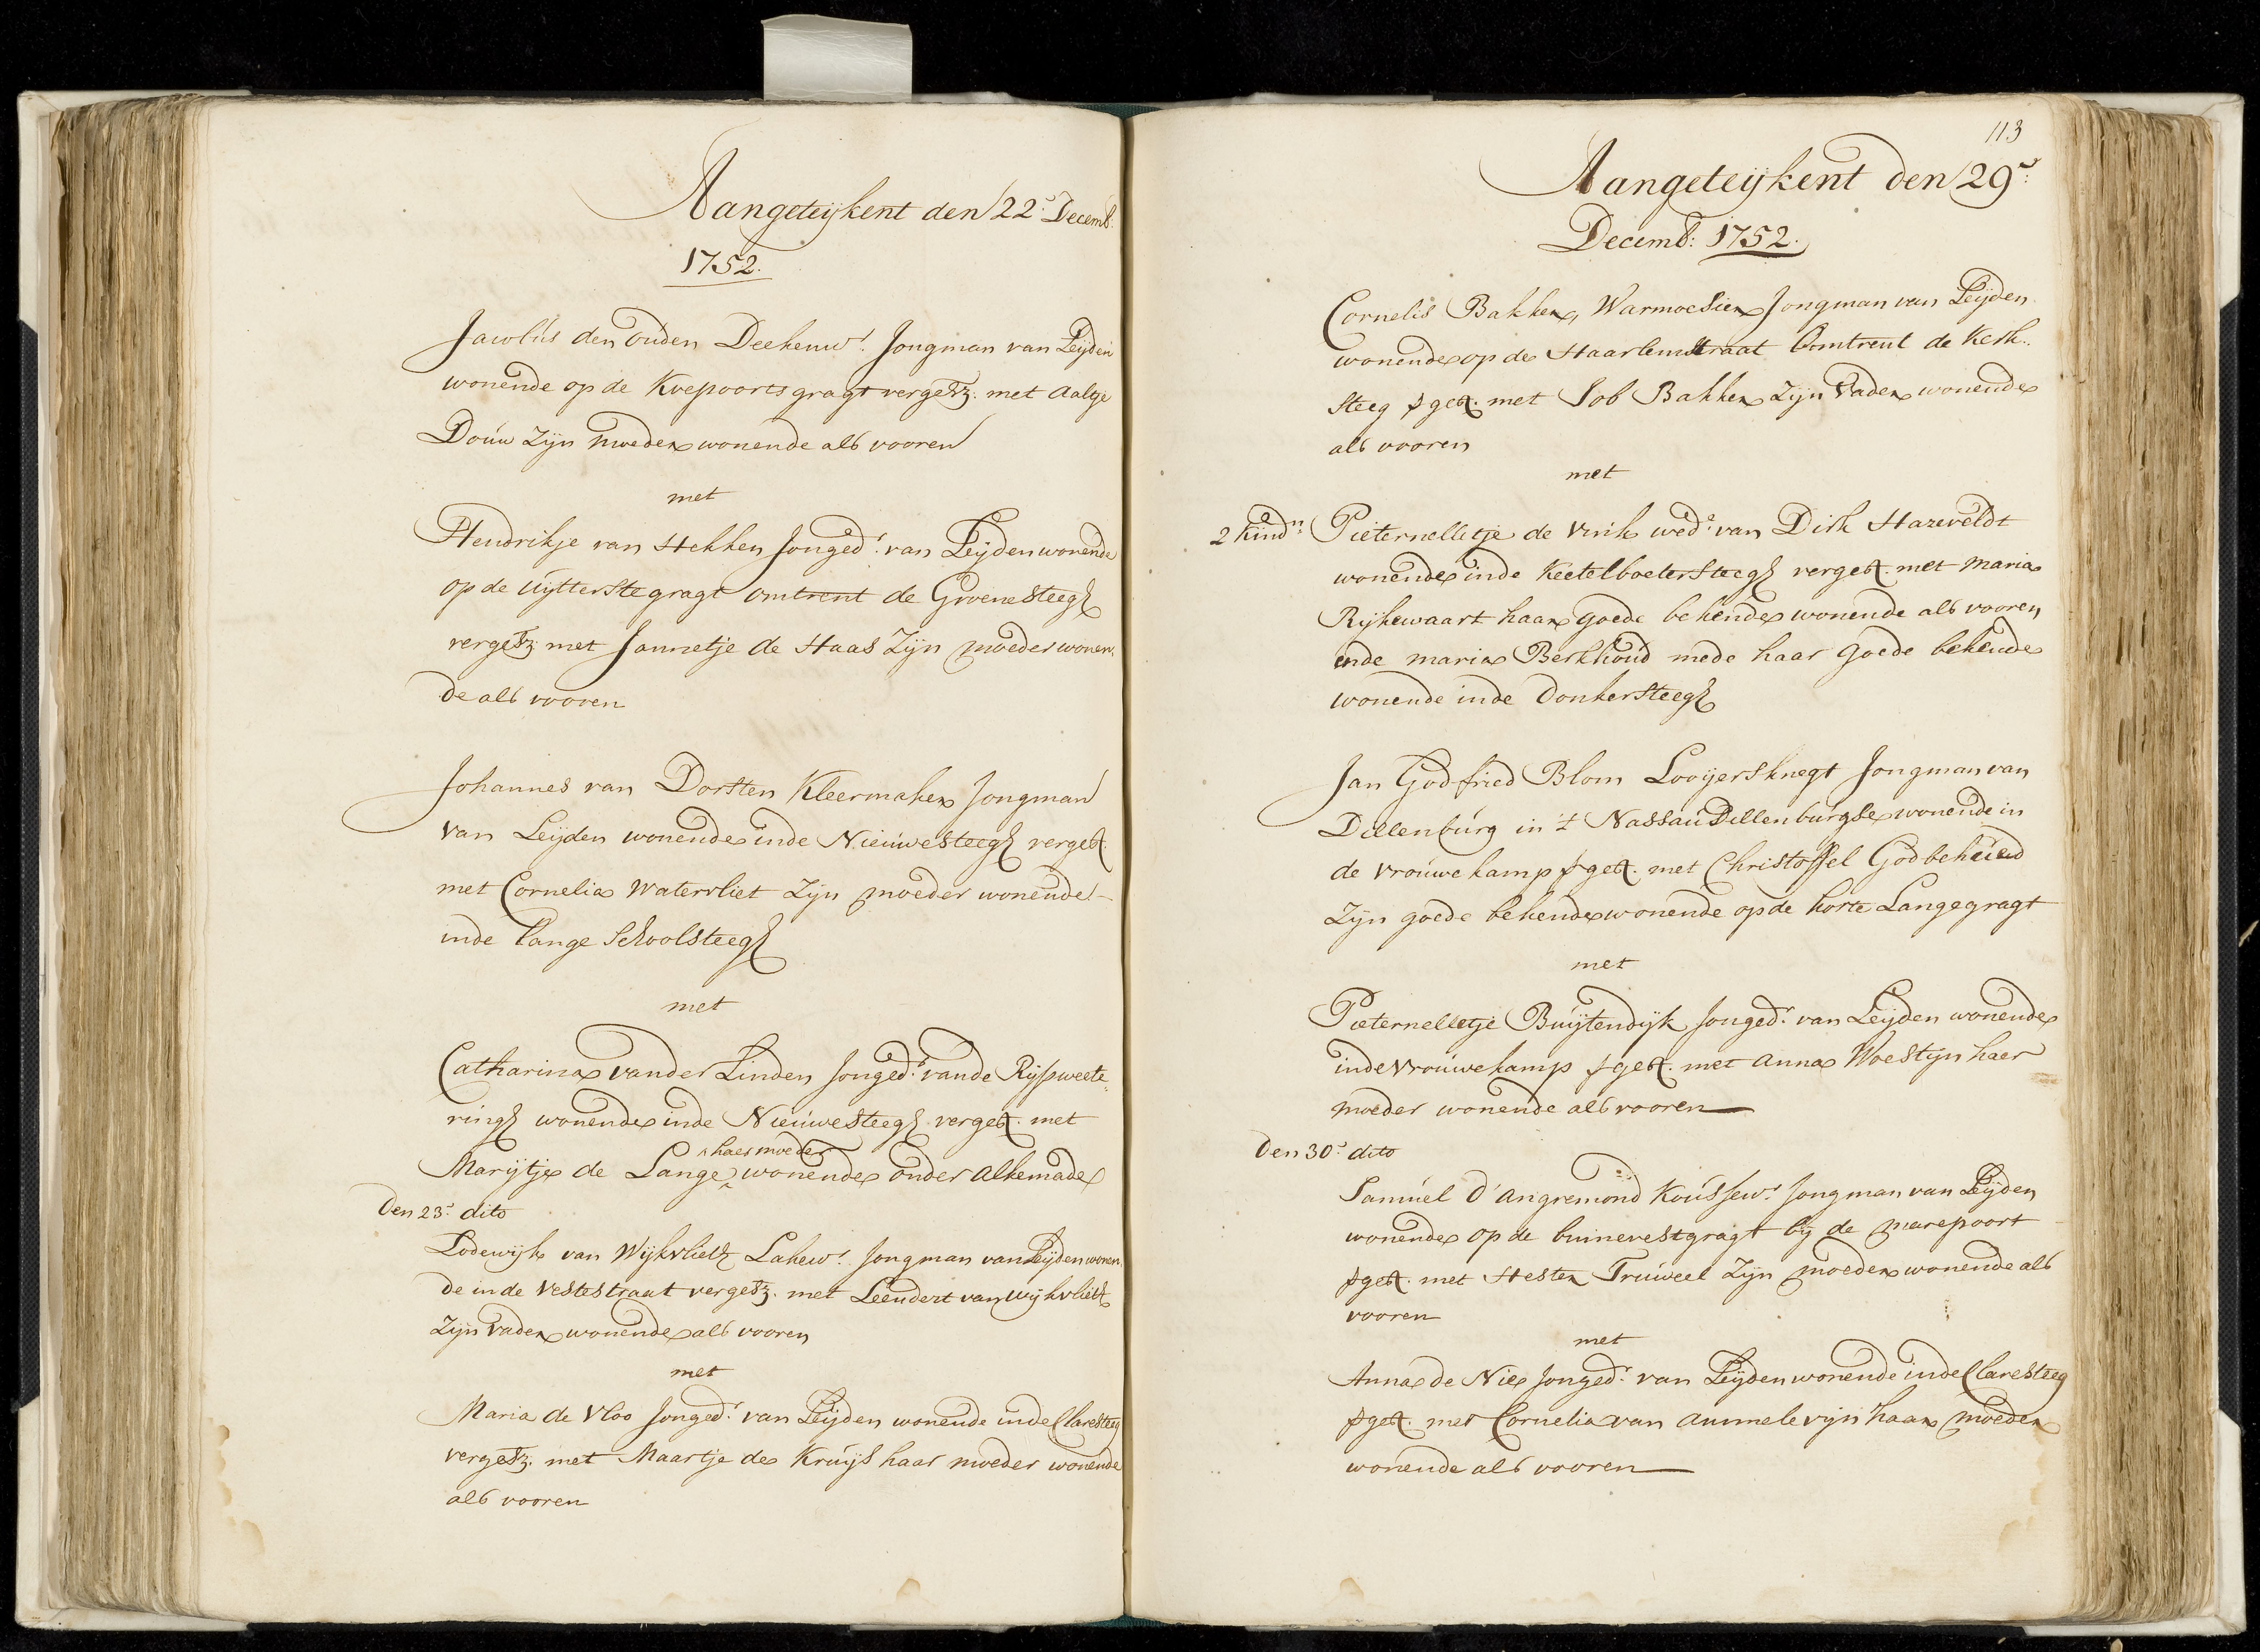 Aangeteijkent den 22:e Decemb:
1752.
Jacobus den Ouden Deekenw:r Jongman van Leijden
wonende op de Koepoortsgragt vergetz. met Aaltje
Douw Zijn moeder wonende als vooren
met
Hendrikje van Hekken Jonged:r van Leijden wonende
op de Uijtterstegragt omtrent de Groenesteeg
vergetz. met Jannetje de Haas Zijn moeder wonen.
de als vooren
Johannes van Dorsten Kleermaker Jongman
van Leijden wonende inde Nieuwesteeg verget.
met Cornelia Watervliet Zijn moeder wonende
inde lange Schoolsteeg
met
Catharina vander Linden Jonged:r vande Rijpweete
ring wonende inde Nieuwesteeg verget. met
haer moeder
Marijtje de Lange wonende onder Alkemade
Den 23:e dito
Lodewijk van Wijkvliet Lakew:r Jongman van Leijden wonen.
de inde Vestestraat vergetz. met Leendert van Wijkvliet
Zijn vader wonende als vooren
met
Maria de Vloo Jonged:r van Leijden wonende inde Claresteeg
vergetz. met Maartje de Kruijs haar moeder wonende
als vooren
113
Aangeteijkent den 29:e
Decemb: 1752.
Cornelis Bakker, Warmoesier Jongman van Leijden
wonende op de Haarlemstraat Omtrent de Kerk.
steeg get. met Job Bakker Zijn Vader wonende
als vooren
met
2 Kind:n Pieternelletje de Vink wed:e van Dirk Hazeveldt
wonende inde Keetelboetersteeg verget. met Maria
Rijkewaart haar goede bekende wonende als vooren
ende maria Berkhoud mede haar goede bekende
wonende inde Donkersteeg
Jan Godfried Blom Looijersknegt Jongman van
Dillenburg in 't Nassau Dillenburgse wonende in
de Vrouwekamp get. met Christoffel Godbehued
Zijn goede bekende wonende op de korte Langegragt
met
Pieternelletje Buijtendijk Jonged:r van Leijden wonende
inde Vrouwekamp get. met Anna Woestijn haer
moeder wonende als vooren
Den 30:e dito
Samuel D'Angremond Koussew:r Jongman van Leijden
wonende op de binnevestgragt bij de marepoort
get. met Hester Truweel Zijn moeder wonende als
vooren
met
Anna de Nie Jonged:r van Leijden wonende inde Claresteeg
get. met Cornelia van Ammelevijn haar moeder
wonende als vooren